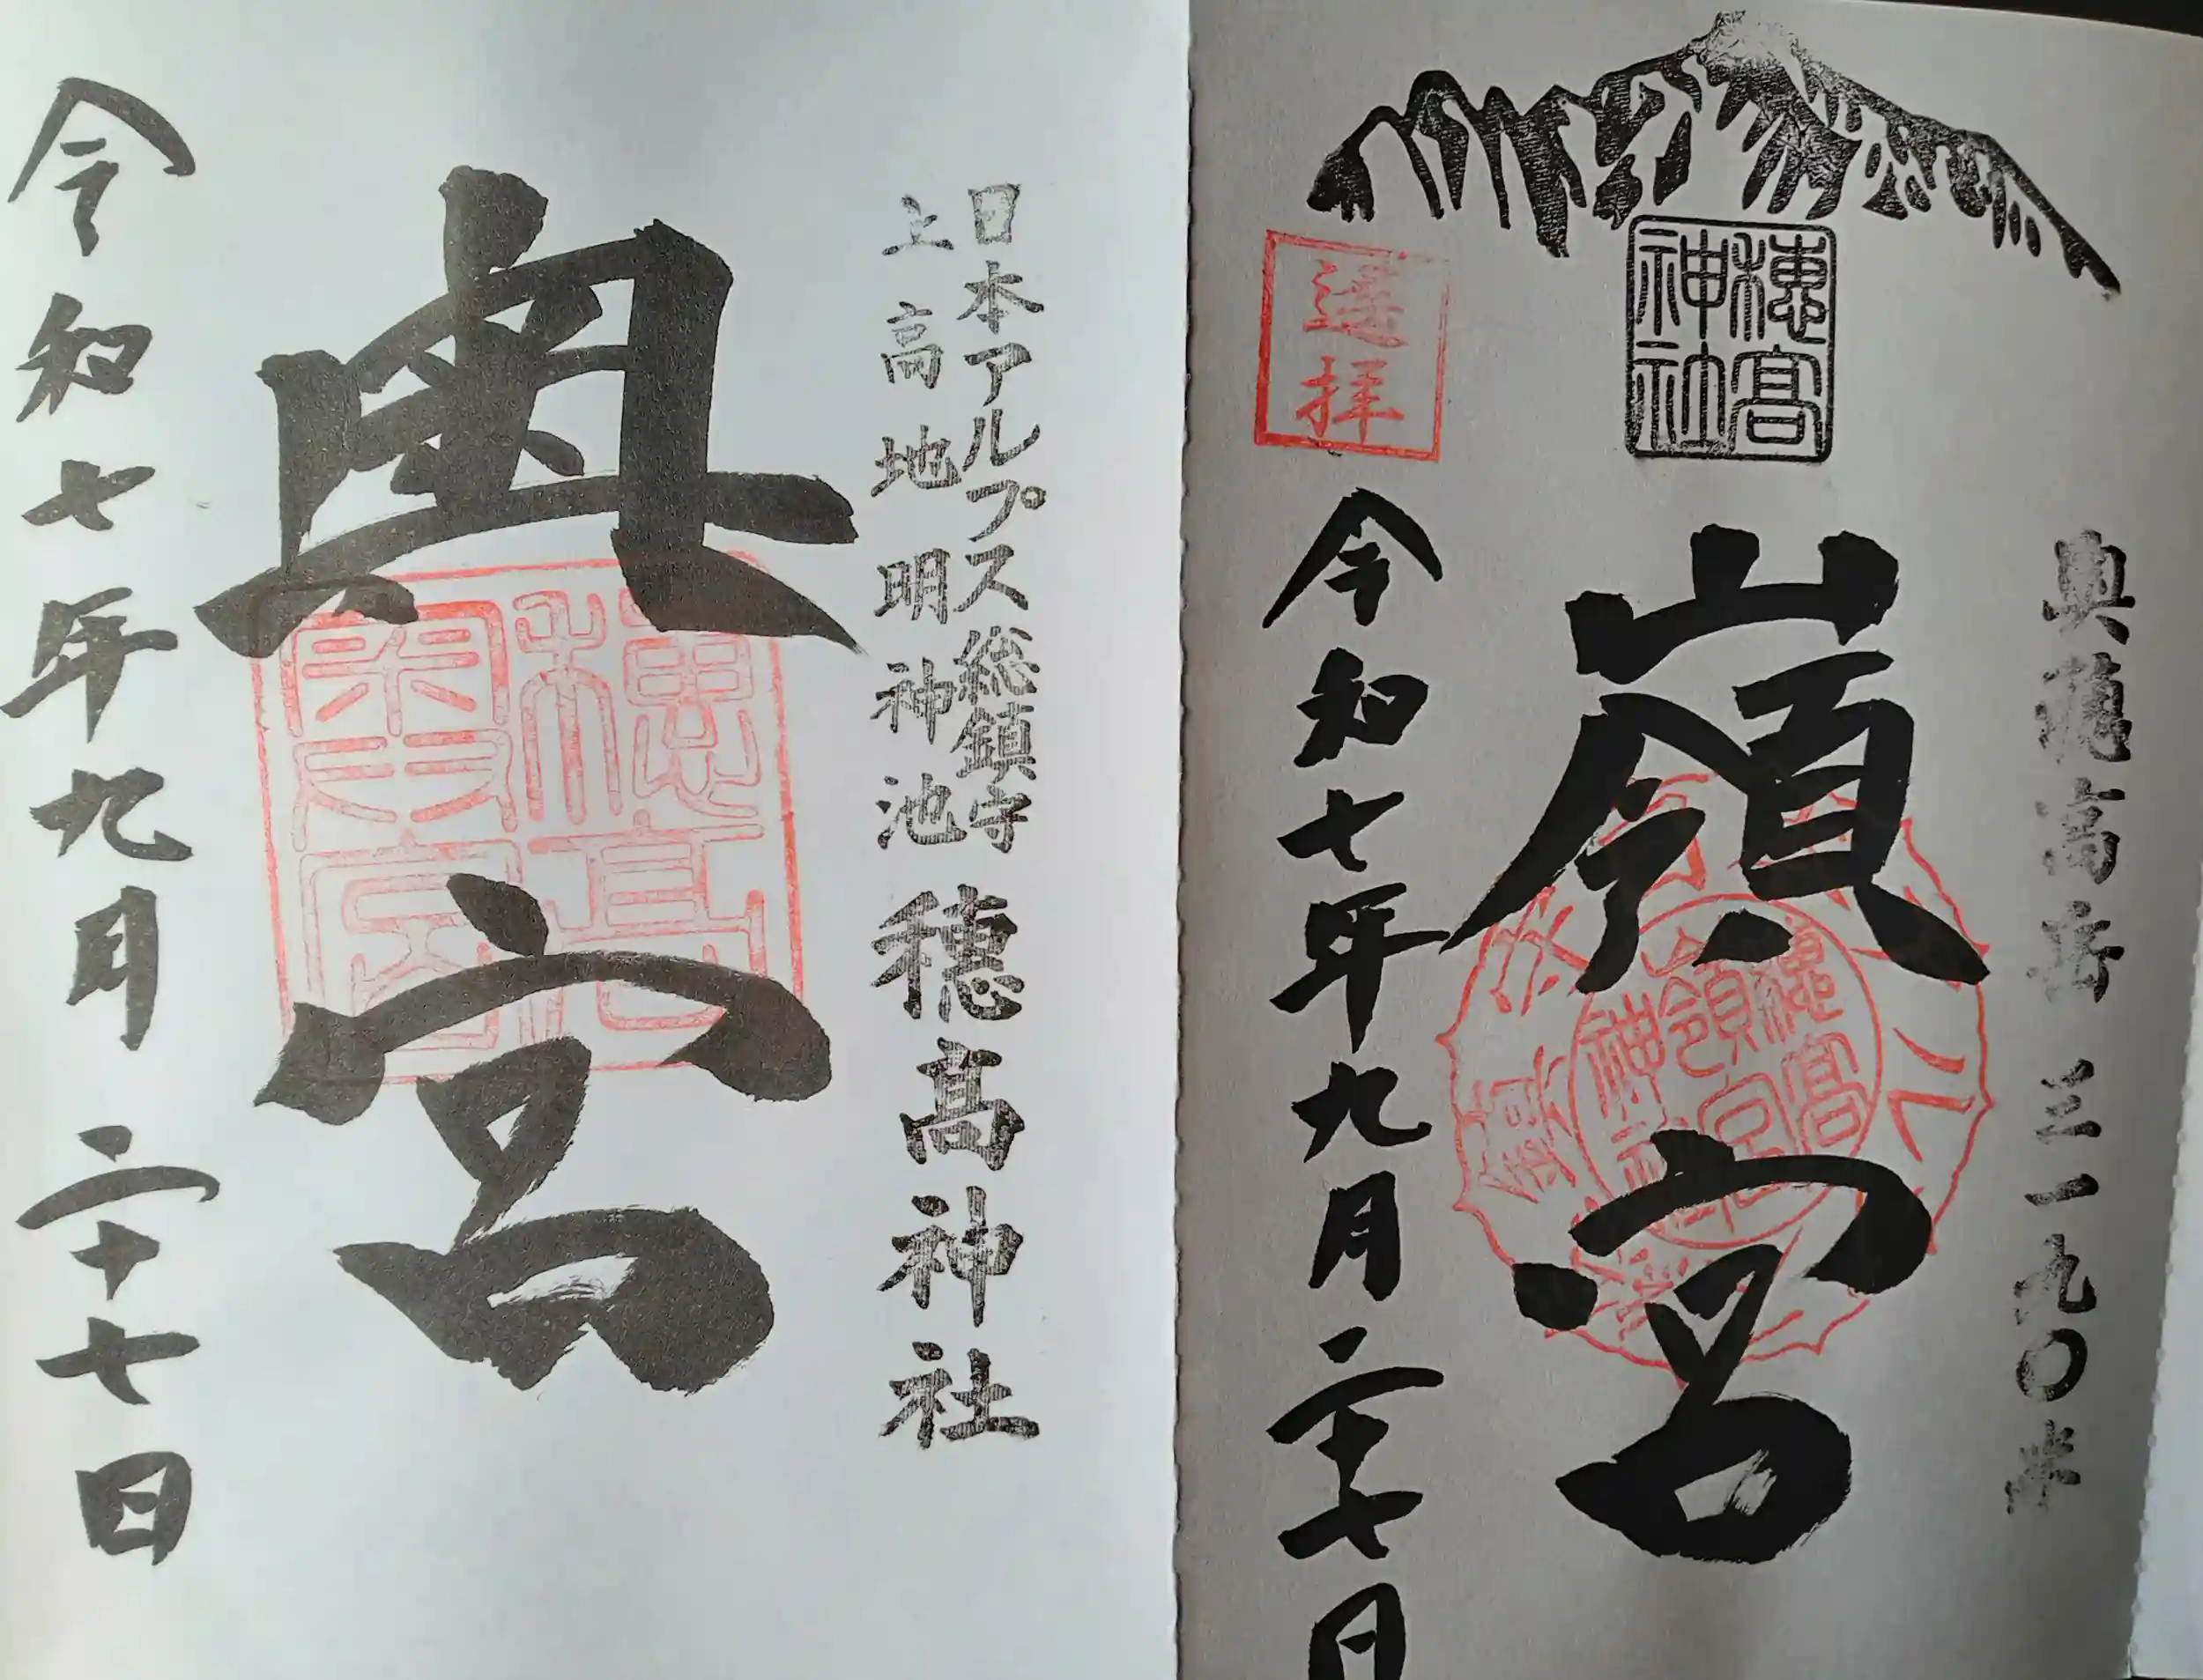 奥穂高岳 三一九〇米
穂高
神社
嶺宮
穂高
嶺宮
神社
遥拝
令和七年九月二十七日
日本アルプス総鎮守
上高地明神池
穂高神社
奥宮
穂高
奥宮
令和七年九月二十七日